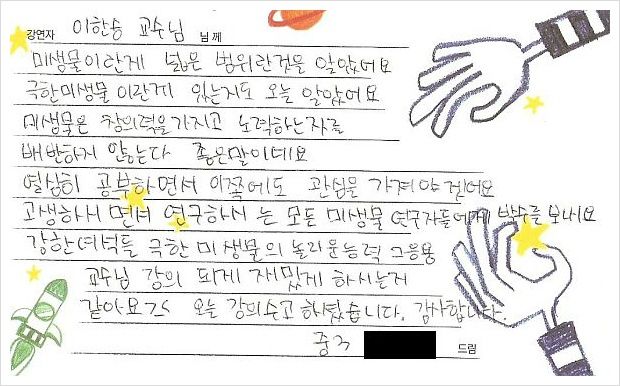 강연자 이한승 교수님 님께
미생물이란게 넓은 범위란것을 알았어요
극한미생물이란게 있는지도 오늘 알았어요
미생물은 창의력을가지고 노력하는자를
배반하지 않는다 좋은말이네요
열심히 공부하면서 이쪽에도 관심을 가져야 겠어요
고생하시면서 연구하시는 모든 미생물 연구자들에게 박수를 보내요
강한녀석들 극한 미생물의 놀라운능력 그응용
교수님 강의 되게 재밌게 하시는거
같아요ㅈㅅ 오늘 강의수고하셨습니다. 감사합니다.
중3 드림